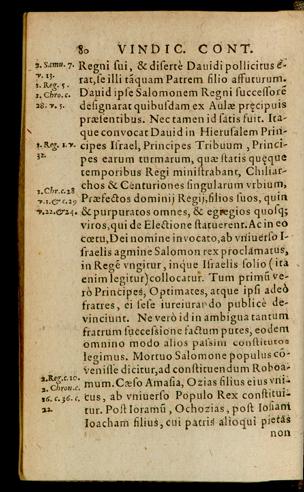 80 VINDIC. CONT.
2. Samu. 7. v. 13.
1. Reg. 5.
1. Chro. c. 28. v. 5.
1. Reg. 1. v. 32.
1. Chr. c. 28 v. 1. & c. 29 v. 22. & 24.
2. Reg. c. 10.
2. Chron. c. 26. c. 36. c. 22.
Regni sui, & disertè Dauidi pollicitus e-
rat, se illi tāquam Patrem filio affuturum.
Dauid ipse Salomonem Regni successorē
designarat quibusdam ex Aulæ pręcipuis
præsentibus. Nec tamen id satis fuit. Ita-
que conuocat Dauid in Hierusalem Prin-
cipes Israel, Principes Tribuum, Princi-
pes earum turmarum, quæ statis quęque
temporibus Regi ministrabant, Chiliar-
chos & Centuriones singularum vrbium,
Præfectos dominij Regij, filios suos, quin
& purpuratos omnes, & egregios quosq;
viros, qui de Electione statuerent. Ac in eo
cœtu, Dei nomine inuocato, ab vniuerso I-
sraelis agmine Salomon rex proclamatus,
in Regē vngitur, inque Israelis solio (ita
enim legitur) collocatur. Tum primū ve-
rò Principes, Optimates, atque ipsi adeò
fratres, ei sese iureiurando publicè de-
uinciunt. Ne verò id in ambigua tantum
fratrum successione factum putes, eodem
omnino modo alios passim constitutos
legimus. Mortuo Salomone populus cō-
uenisse dicitur, ad constituendum Roboa-
mum. Cæso Amasia, Ozias filius eius vni-
cus, ab vniuerso Populo Rex constitui-
tur. Post Ioramū, Ochozias, post Iosiam
Ioacham filius, cui patris alioqui pietas
non